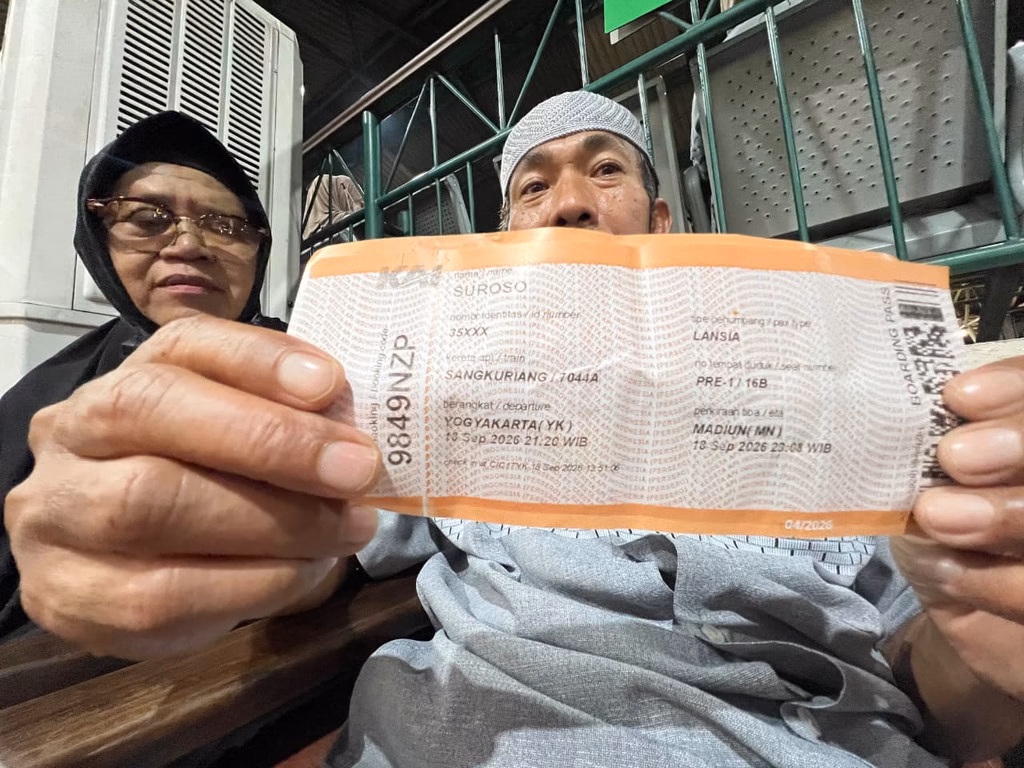 KAI
nama / name
SUROSO
nomor identitas / id number
35XXX
kereta api / train
SANGKURIANG / 7044A
berangkat / departure
YOGYAKARTA( YK )
18 Sep 2026 21:20 WIB
tipe penumpang / pax type
LANSIA
no tempat duduk / seat number
PRE-1 / 16B
perkiraan tiba / eta
MADIUN( MN )
18 Sep 2026 23:08 WIB
booking code
9849NZP
BOARDING PASS
04/2026